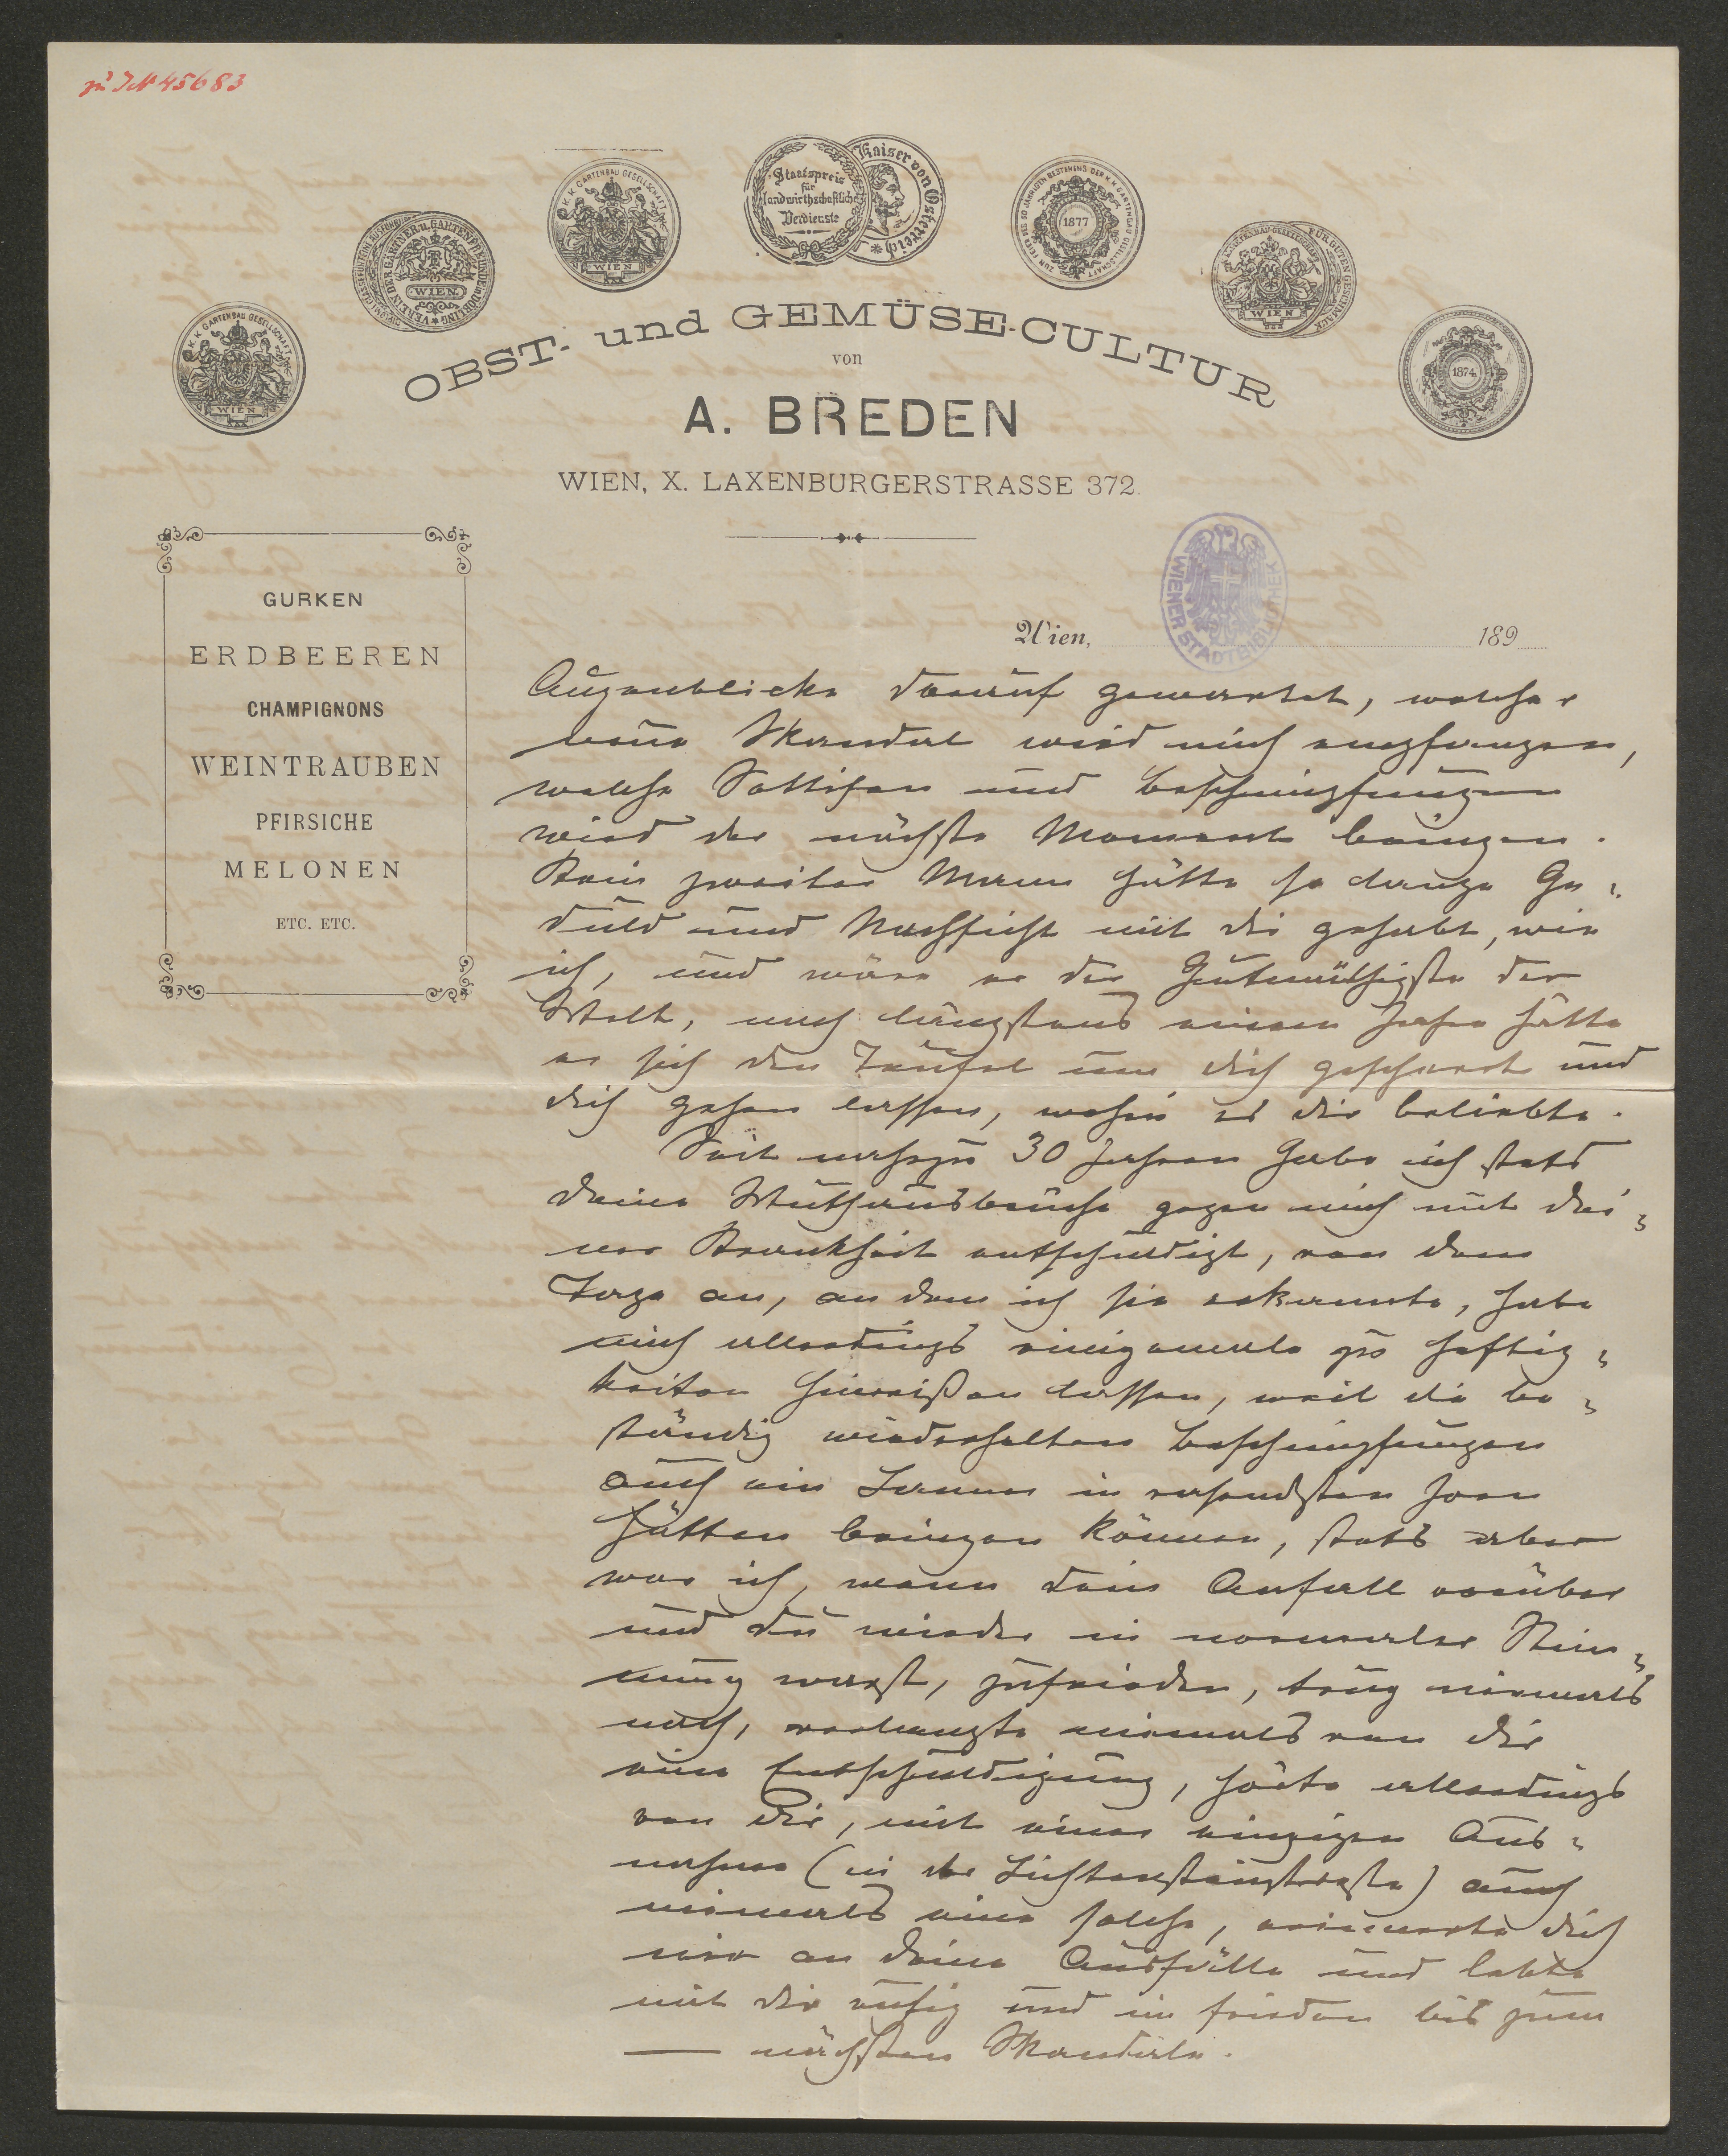 zu IN 45683
K. K. GARTENBAU GESELLSCHAFT
WIEN
VEREIN DER GÄRTNER u. GARTENFREUNDE in DÖBLING
WIEN.
K. K. GARTENBAU GESELLSCHAFT
WIEN
Staatspreis
für
landwirthschaftliche
Verdienste
Kaiser von Österreich
ZUR FEIER DES 50 JÄHRIGEN BESTEHENS DER K. K. GARTENBAU GESELLSCHAFT
1877
K. K. GARTENBAU GESELLSCHAFT
WIEN
FÜR GUTEN GESCHMACK
1874
OBST- und GEMÜSE-CULTUR
von
A. BREDEN
WIEN, X. LAXENBURGERSTRASSE 372.
GURKEN
ERDBEEREN
CHAMPIGNONS
WEINTRAUBEN
PFIRSICHE
MELONEN
ETC. ETC.
WIENER STADTBIBLIOTHEK
Wien, 189
Augenblicke darauf gewartet, welcher
neue Skandal wird mich empfangen,
welche Sottisen und Beschimpfungen
wird der nächste Moment bringen.
Kein zweiter Mann hätte so lange Ge-
duld und Nachsicht mit dir gehabt, wie
ich, und wäre er der Gutmüthigste der
Welt, nach längstens einem Jahre hätte
er sich den Teufel um dich geschert und
dich gehen lassen, wohin es dir beliebte.
Seit nahezu 30 Jahren habe ich stets
deine Wuthausbrüche gegen mich mit dei-
ner Krankheit entschuldigt, von dem
Tage an, an dem ich sie erkannte, habe
mich allerdings einigemale zu Heftig-
keiten hinreißen lassen, weil die be-
ständig wiederholten Beschimpfungen
auch ein Lamm in rasendsten Zorn
hätten bringen können, stets aber
war ich, wenn dein Anfall vorüber
und du wieder in normaler Stim-
mung warst, zufrieden, trug niemals
nach, verlangte niemals von dir
eine Entschuldigung, hörte allerdings
von dir, mit einer einzigen Aus-
nahme (in der Lichtensteinstraße) auch
niemals eine solche, erinnerte dich
nie an deine Ausfälle und lebte
mit dir ruhig und in Frieden bis zum
— nächsten Skandale.